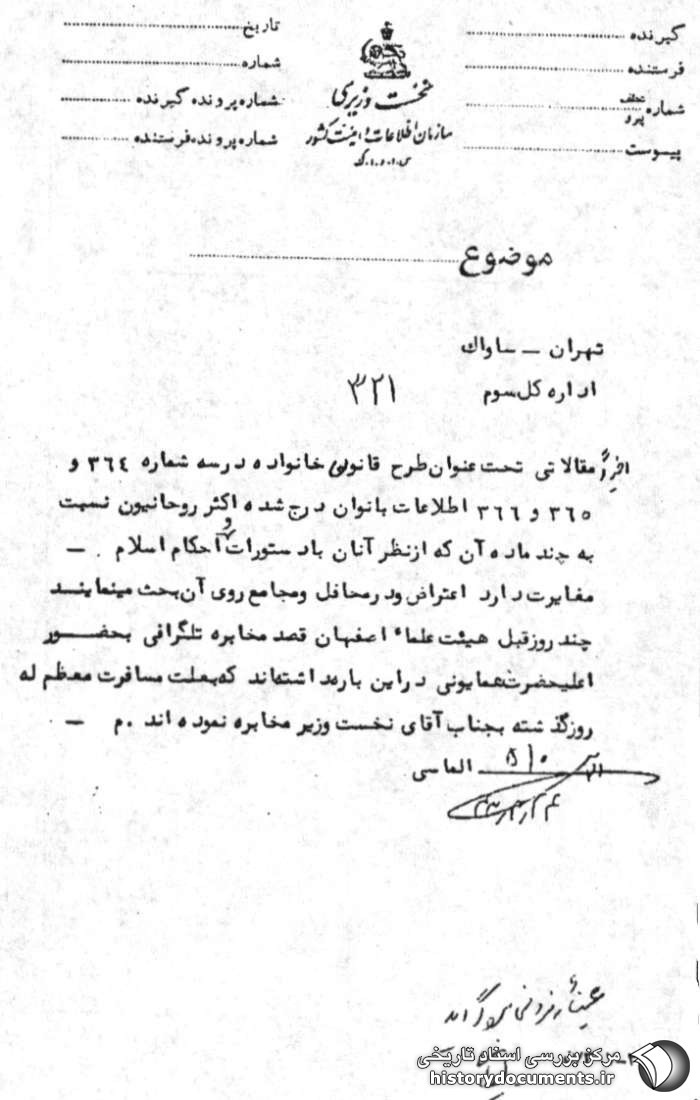 گیرنده
فرستنده
شماره عطف پیرو
پیوست
نخست وزیری
سازمان اطلاعات و امنیت کشور
س.ا.و.ا.ک
تاریخ
شماره
شماره پرونده گیرنده
شماره پرونده فرستنده
موضوع
تهران – ساواک
اداره کل سوم ۳۲۱
اخیراً مقالاتی تحت عنوان طرح قانون خانواده در سه شماره ۳۶۴ و
۳۶۵ و ۳۶۶ اطلاعات بانوان درج شده و اکثر روحانیون نسبت
به چند ماده آن که از نظر آنان با دستورات و احکام اسلام –
مغایرت دارد اعتراض و در محافل و مجامع روی آن بحث مینمایند
چند روز قبل هیئت علماء اصفهان قصد مخابره تلگرافی بحضور
اعلیحضرت همایونی در این باره داشته‌اند که بعلت مسافرت معظم له
روز گذشته بجناب آقای نخست وزیر مخابره نموده اند .م –
الماسی
مرکز بررسی اسناد تاریخی
historydocuments.ir